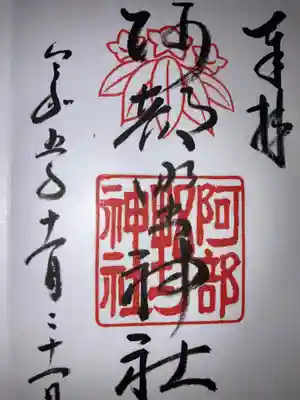 奉拝
阿部野神社
阿部野神社
令和五年十一月二十一日